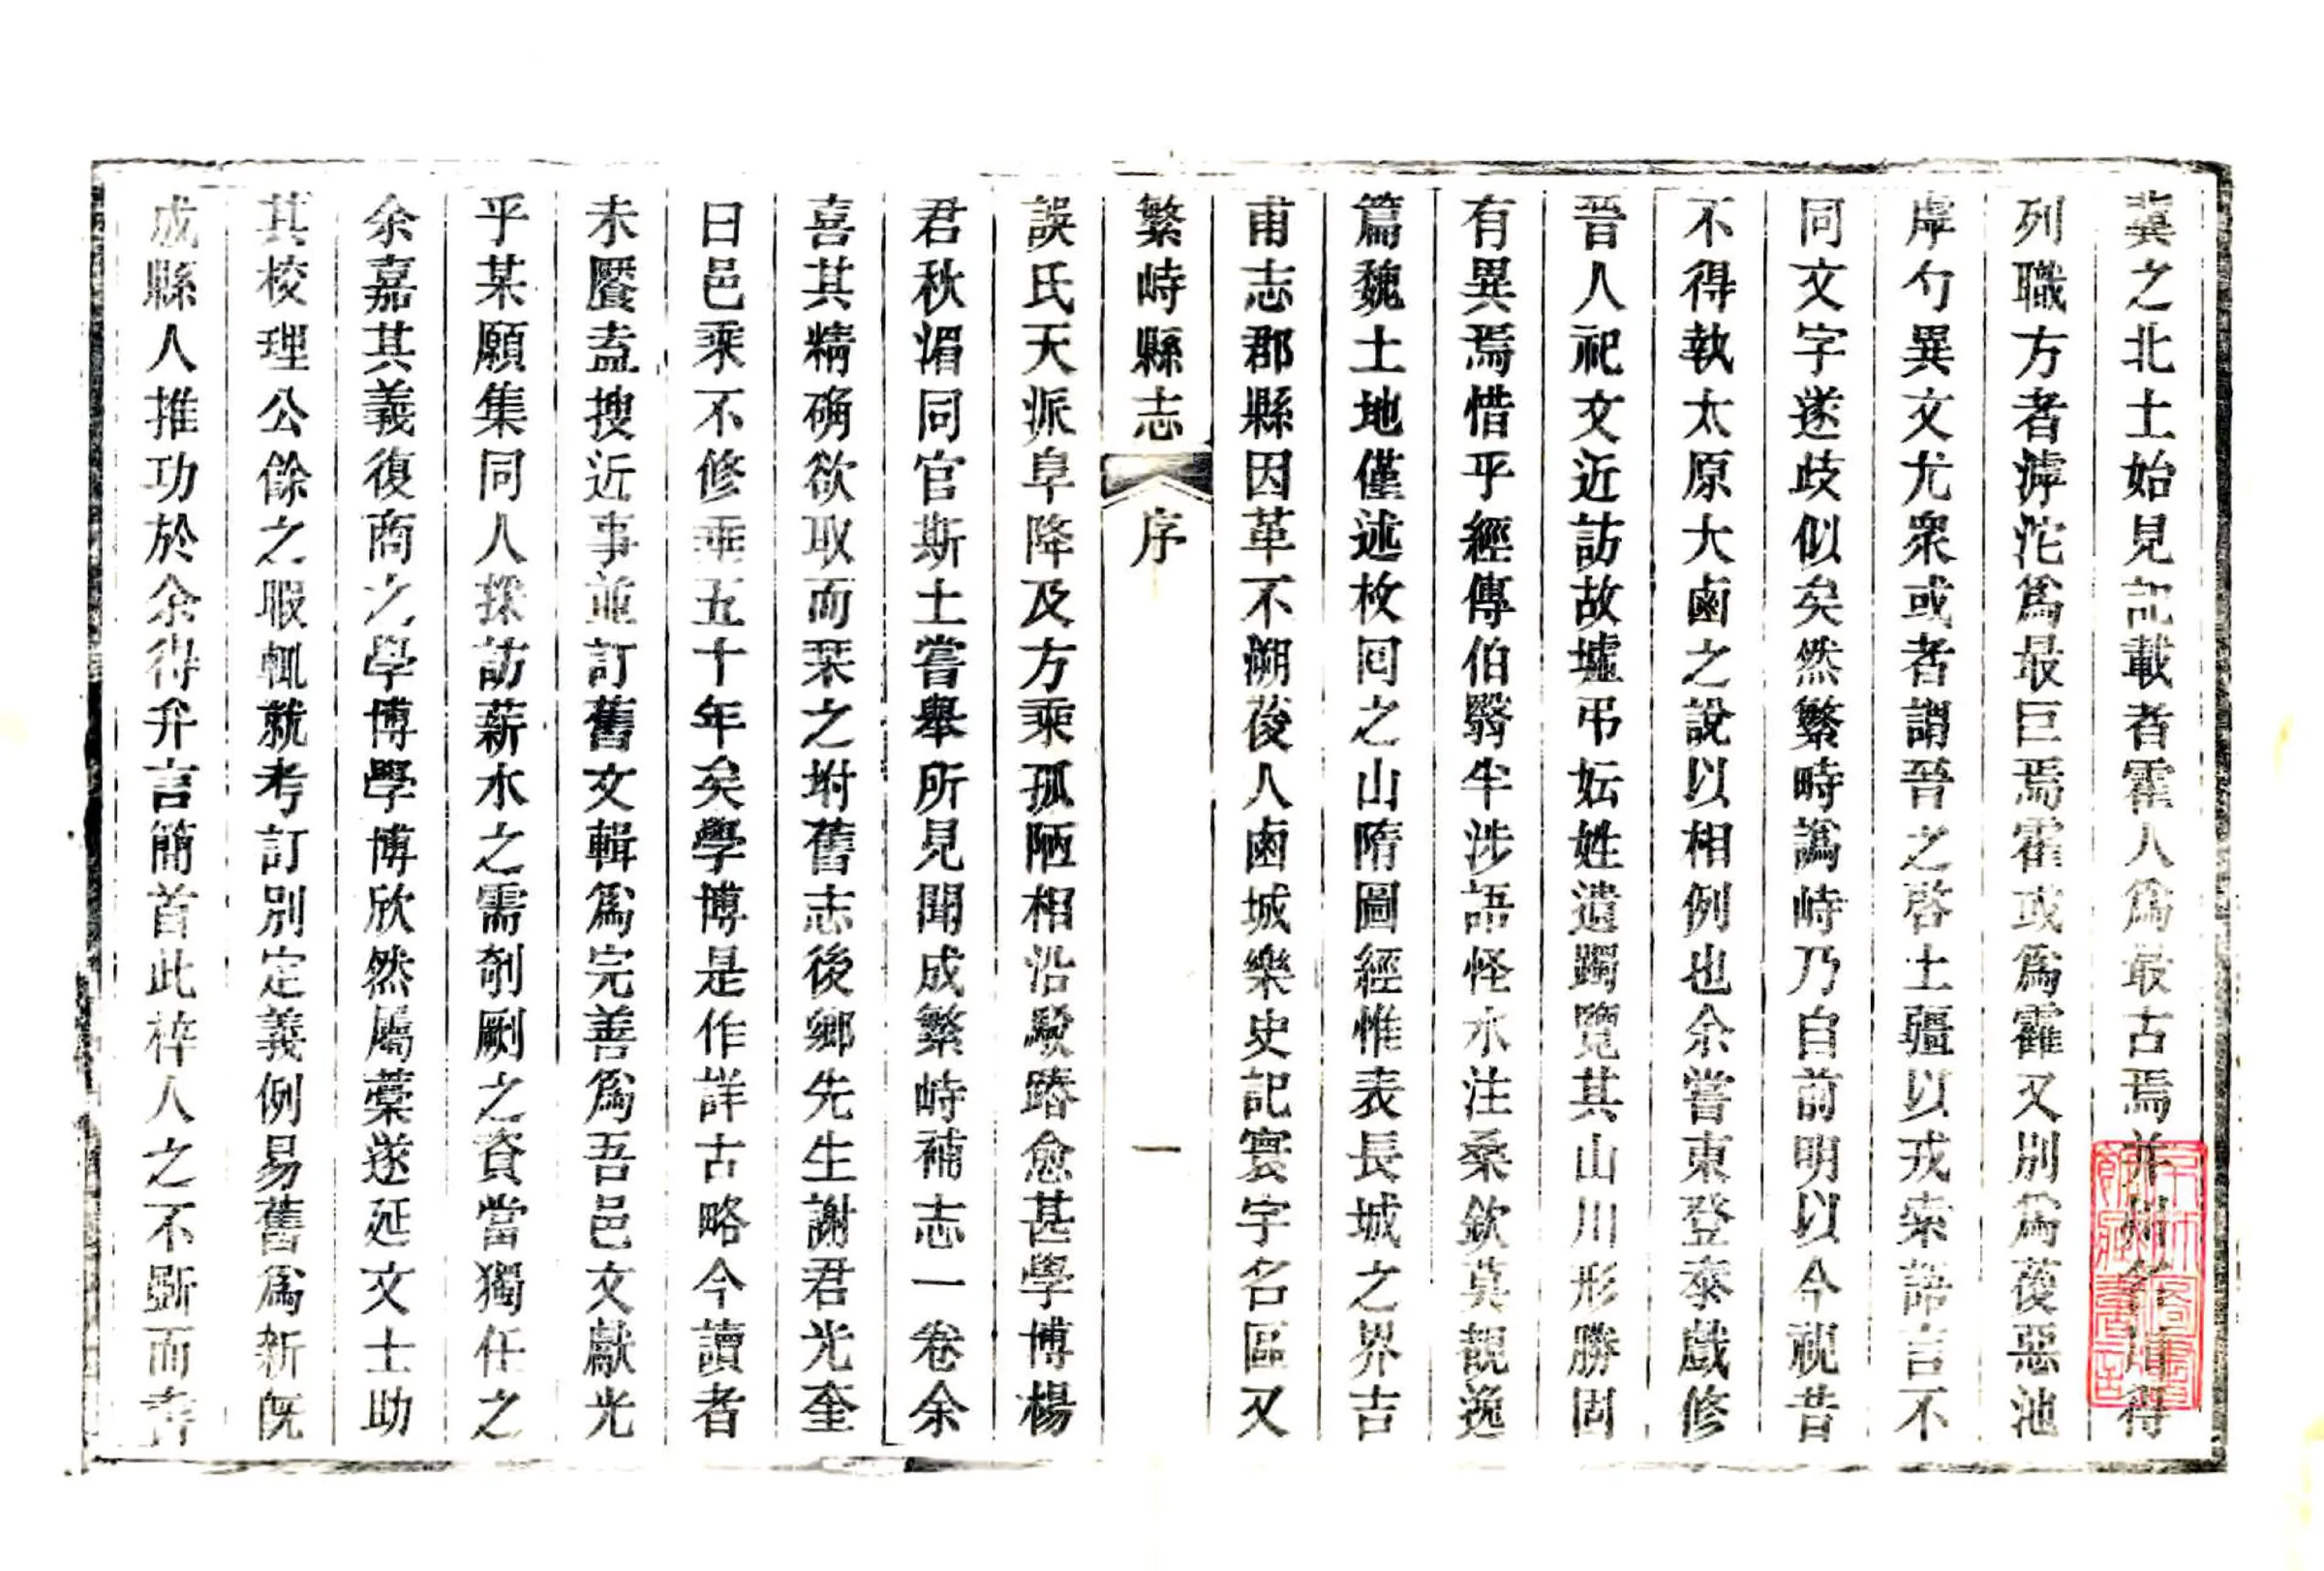 冀之北土始見記載者霍人爲最古焉并州名川得
列職方者滹沱爲最巨焉霍或爲靃又别爲葰惡池
虖勺異文尤衆或者謂晉之啓土疆以戎索語言不
同文字遂歧似矣然繁畤譌峙乃自前明以今視昔
不得執太原大鹵之說以相例也余嘗東登泰戲修
晉人祀文近訪故墟弔妘姓遺躅覽其山川形勝固
有異焉惜乎經傳伯翳半涉語怪水注桑欽莫覩逸
篇魏土地僅述枚囘之山隋圖經惟表長城之界吉
甫志郡縣因革不溯葰人鹵城樂史記寰宇名區又
繁峙縣志 序 一
誤氏天派阜降及方乘孤陋相沿駮蹖愈甚學博楊
君秋湄同官斯土嘗舉所見聞成繁峙補志一卷余
喜其精确欲取而栞之坿舊志後鄉先生謝君光奎
曰邑乘不修垂五十年矣學博是作詳古略今讀者
未饜盍搜近事並訂舊文輯爲完善爲吾邑文獻光
乎某願集同人採訪薪水之需剞劂之資當獨任之
余嘉其義復商之學博學博欣然屬藁遂延文士助
其校理公餘之暇輒就考訂别定義例易舊爲新旣
成縣人推功於余得弁言簡首此梓人之不斲而